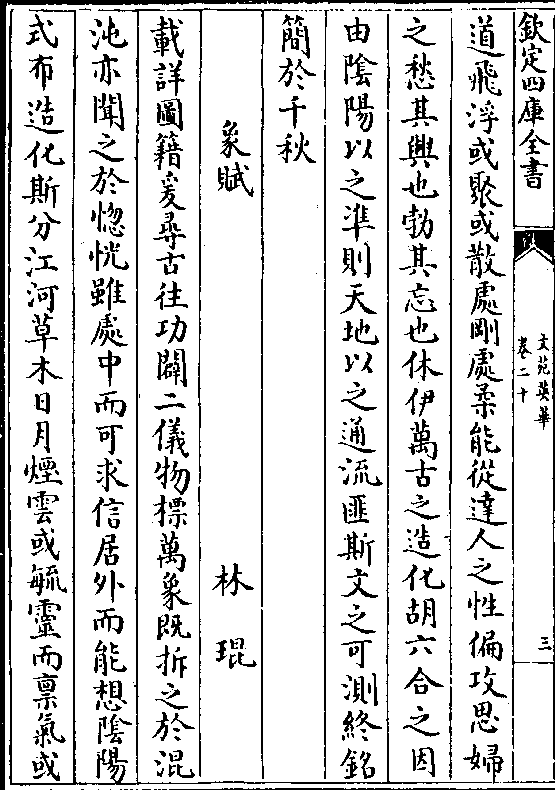 欽定四庫全書
文苑英華
卷二十
三
道飛浮或聚或散處剛處柔能從達人之性偏攻思婦
之愁其興也勃其忘也休伊萬古之造化胡六合之因
由陰陽以之準則天地以之通流匪斯文之可測終銘
簡於千秋
象賦
林琨
載詳圖籍爰尋古往功闢二儀物標萬象既拆之於混
沌亦聞之於惚恍雖處中而可求信居外而能想陰陽
式布造化斯分江河草木日月煙雲或毓靈而禀氣或